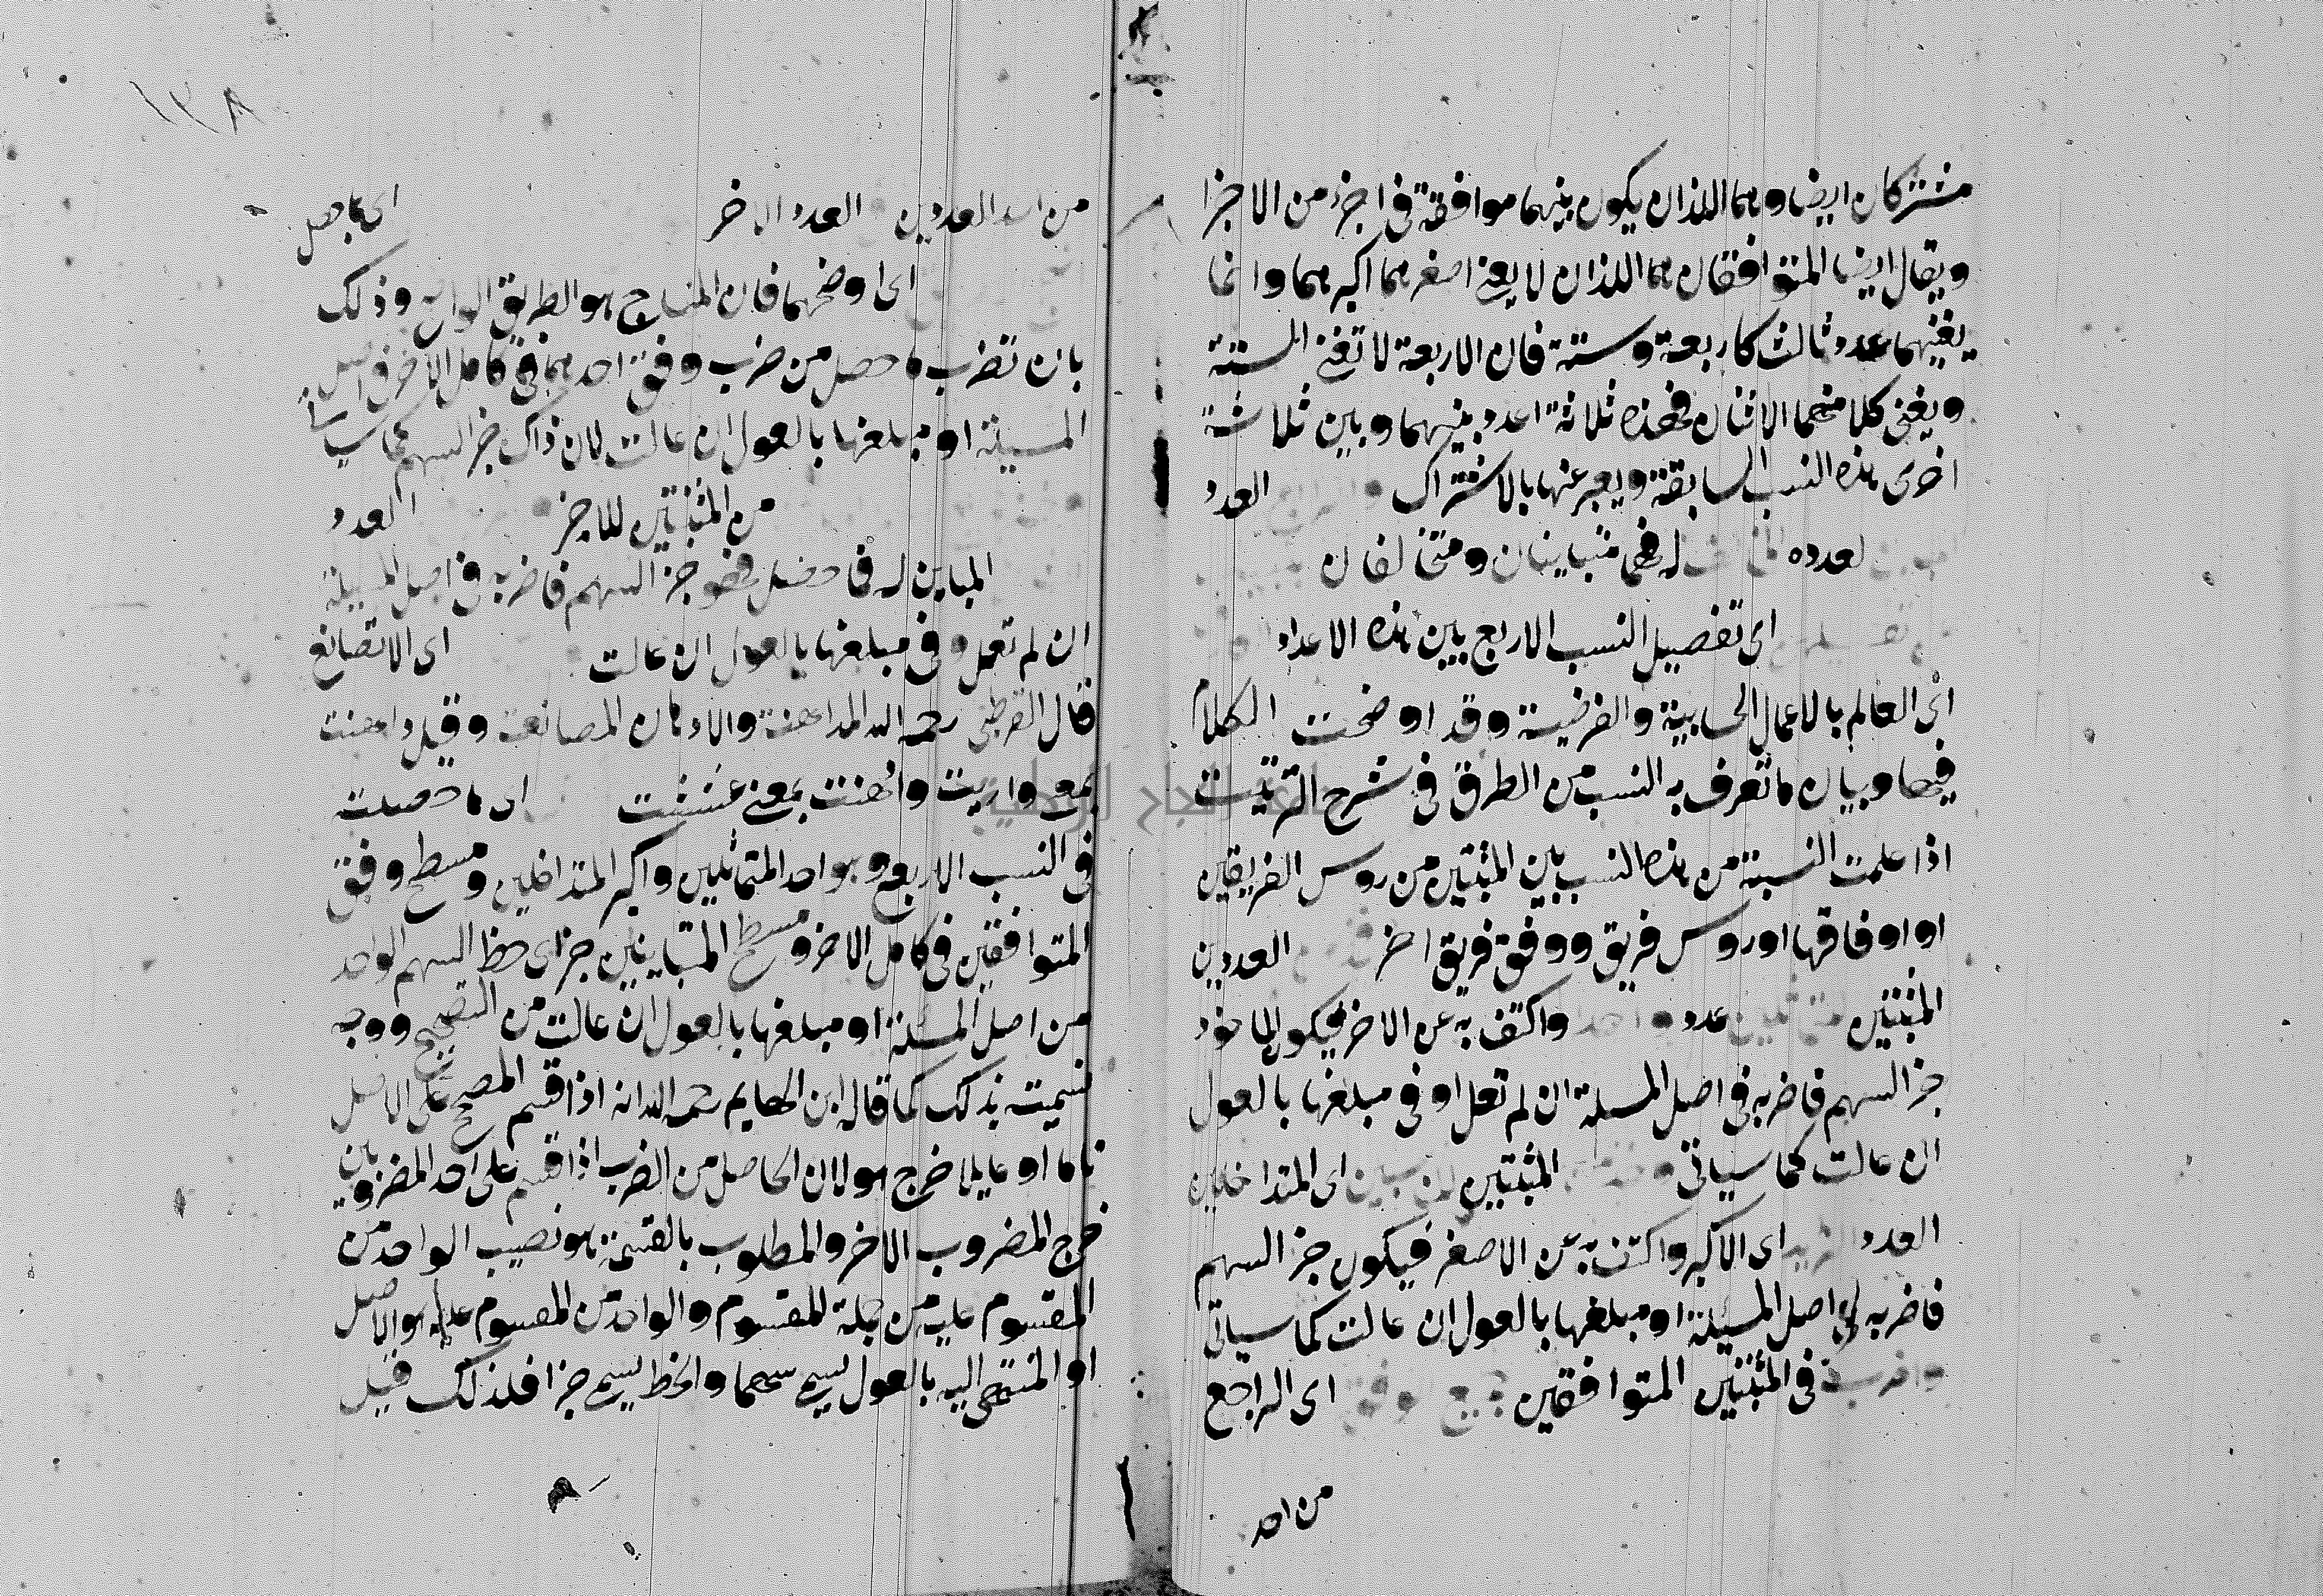 مشتركان ايضا وهما اللذان يكون بينهما موافقة في اجزء من الاجزا
ويقال ايضا المتوافقان هما اللذان لا يفني اصغرهما اكبرهما وانما
يفنيهما عدد ثالث كاربعة وستة فان الاربعة لا تفني الستة
ويفني كلا منهما الاثنان فهذه ثلاثة اعدد بينهما وبين ثلاثة
اخرى هذه النسب السابقة ويعبر عنها بالاشتراك العدد
لعدده له فهما متباينان ومتخالفان
اى تفصيل النسب الاربع بين هذه الاعداد
اى العالم بالاعمال الحسابية والفرضية وقد اوضحت الكلام
فيها وبيان ما تعرف به النسب من الطرق في شرح الترتيب
اذا علمت النسبة من هذه النسب بين المثبتين من روس الفريقين
او اوفاقها او روس فريق ووفق فريق اخر العددين
المثبتين عدد واكتف به عن الاخر فيكون الماخوذ
جز السهم فاضربه في اصل المسلة ان لم تعل او في مبلغها بالعول
ان عالت كما سياتي المثبتين اى المتداخلين
العدد اى الاكبر واكتف به عن الاصغر فيكون جز السهم
فاضربه في اصل المسئلة او مبلغها بالعول ان عالت كما سياتي
في المثبتين المتوافقين اى الراجع
من احد
١٢٨
من احد العددين العدد الاخر اى ما حصل
اى اوضحها فان المنهاج هو الطريق الواضح وذلك
بان تضرب ما حصل من ضرب وفق احدهما في كامل الاخر في اصل
المسيلة او مبلغها بالعول ان عالت لان ذاك جز السهم كما سياتي
من المثبتين للاخر العدد
المباين له فما حصل فهو جز السهم فاضربه في اصل المسيلة
ان لم تعل وفي مبلغها بالعول ان عالت اى لا تصانع
قال القرطبي رحمه الله المداهنة والادهان المصانعة وقيل داهنت
بمعنى واريت وادهنت بمعنى غششت اى ما حصلت
في النسب الاربع وهو احد المتماثلين واكبر المتداخلين ومسطح وفق
المتوافقين في كامل الاخر ومسطح المتباينين جز اى حظ السهم الواحد
من اصل المسئلة او مبلغها بالعول ان عالت من التصحيح ووجه
تسميته بذلك كما قال ابن الهايم رحمه الله انه اذا قسم المصحح على الاصل
تاما او عايلا خرج هو لان الحاصل من الضرب اذا قسم على احد المضروبين
خرج المضروب الاخر والمطلوب بالقسمة هو نصيب الواحد من
المقسوم عليه من جملة المقسوم والواحد من المقسوم عليه هو الاصل
او المنتهى اليه بالعول يسمى سهما والحظ يسمى جزا فلذلك قيل